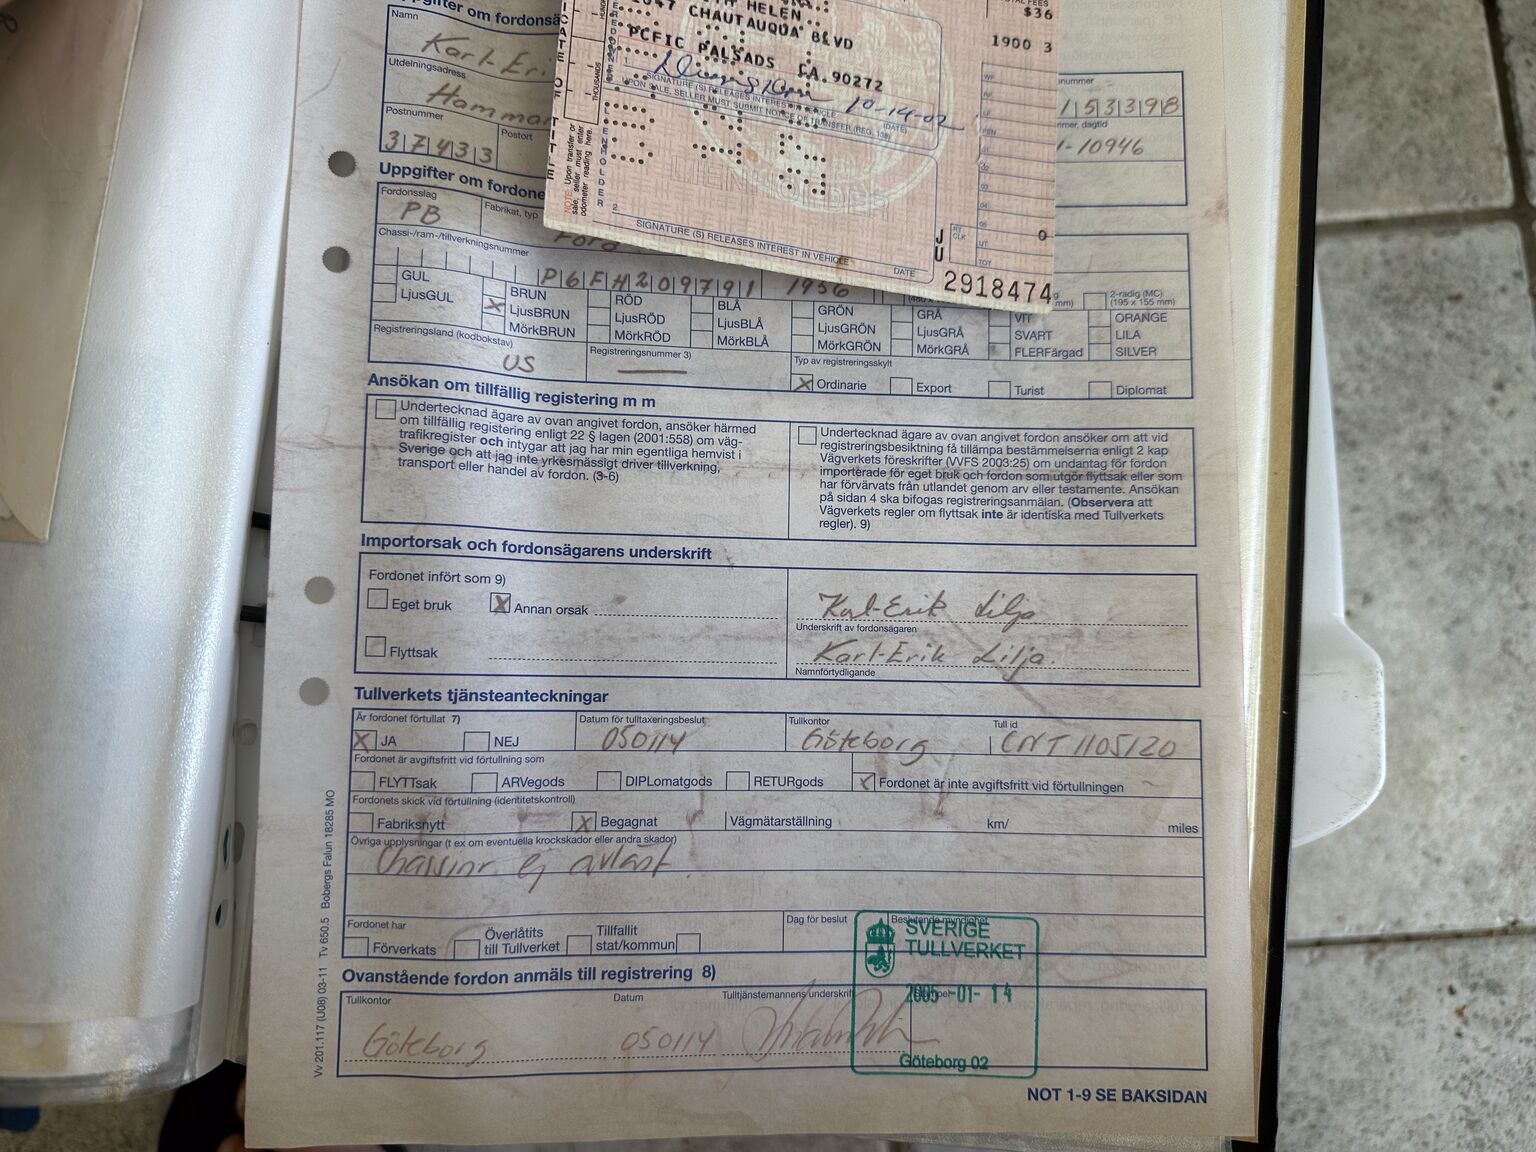 HELEN
$36
CHAUTAUQUA BLVD
1900 3
PCFIC PALSADS CA.90272
10-14-02
SIGNATURE (S) RELEASES INTEREST IN VEHICLE
UPON SALE, SELLER MUST SUBMIT NOTICE OF TRANSFER (REG. 138)
(DATE)
THOUSANDS
NOTE: Upon transfer or sale, seller must enter odometer reading here.
LIENHOLDER
2
SIGNATURE (S) RELEASES INTEREST IN VEHICLE
DATE
JU
RT CLK
UT
TOT
0
2918474
Namn
Karl-Eri
Utdelningsadress
Hammar
Postnummer
Postort
37433
153398
dagtid
-10946
Uppgifter om fordone
Fordonsslag
Fabrikat, typ
PB
Ford
Chassi-/ram-/tillverkningsnummer
P6FH209791 1956
GUL BRUN RÖD BLÅ GRÖN GRÅ VIT ORANGE
2-radig (MC)
(195 x 155 mm)
LjusGUL X LjusBRUN LjusRÖD LjusBLÅ LjusGRÖN LjusGRÅ SVART LILA
MörkBRUN MörkRÖD MörkBLÅ MörkGRÖN MörkGRÅ FLERFärgad SILVER
Registreringsland (kodbokstav)
Registreringsnummer 3)
Typ av registreringsskylt
US
X Ordinarie Export Turist Diplomat
Ansökan om tillfällig registering m m
Undertecknad ägare av ovan angivet fordon, ansöker härmed
om tillfällig registering enligt 22 § lagen (2001:558) om väg-
trafikregister och intygar att jag har min egentliga hemvist i
Sverige och att jag inte yrkesmässigt driver tillverkning,
transport eller handel av fordon. (3-6)
Undertecknad ägare av ovan angivet fordon ansöker om att vid
registreringsbesiktning få tillämpa bestämmelserna enligt 2 kap
Vägverkets föreskrifter (VVFS 2003:25) om undantag för fordon
importerade för eget bruk och fordon som utgör flyttsak eller som
har förvärvats från utlandet genom arv eller testamente. Ansökan
på sidan 4 ska bifogas registreringsanmälan. (Observera att
Vägverkets regler om flyttsak inte är identiska med Tullverkets
regler). 9)
Importorsak och fordonsägarens underskrift
Fordonet infört som 9)
Eget bruk X Annan orsak
Flyttsak
Karl-Erik Lilja
Underskrift av fordonsägaren
Karl-Erik Lilja.
Namnförtydligande
Tullverkets tjänsteanteckningar
Är fordonet förtullat 7)
Datum för tulltaxeringsbeslut
Tullkontor
Tull id
X JA NEJ 050114 Göteborg CNT 1105120
Fordonet är avgiftsfritt vid förtullning som
FLYTTsak ARVegods DIPLomatgods RETURgods Fordonet är inte avgiftsfritt vid förtullningen
Fordonets skick vid förtullning (identitetskontroll)
Fabriksnytt X Begagnat Vägmätarställning km/ miles
Övriga upplysningar (t ex om eventuella krockskador eller andra skador)
Chassinr ej avläst.
Fordonet har
Förverkats
Överlåtits
till Tullverket
Tillfallit
stat/kommun
Dag för beslut
Beslutande myndighet
SVERIGE
TULLVERKET
2005-01-14
Göteborg 02
Ovanstående fordon anmäls till registrering 8)
Tullkontor
Datum
Tulltjänstemannens underskrift
Göteborg 050114
NOT 1-9 SE BAKSIDAN
Vv 201.117 (U08) 03-11 Tv 650.5 Bobergs Falun 18285 MO